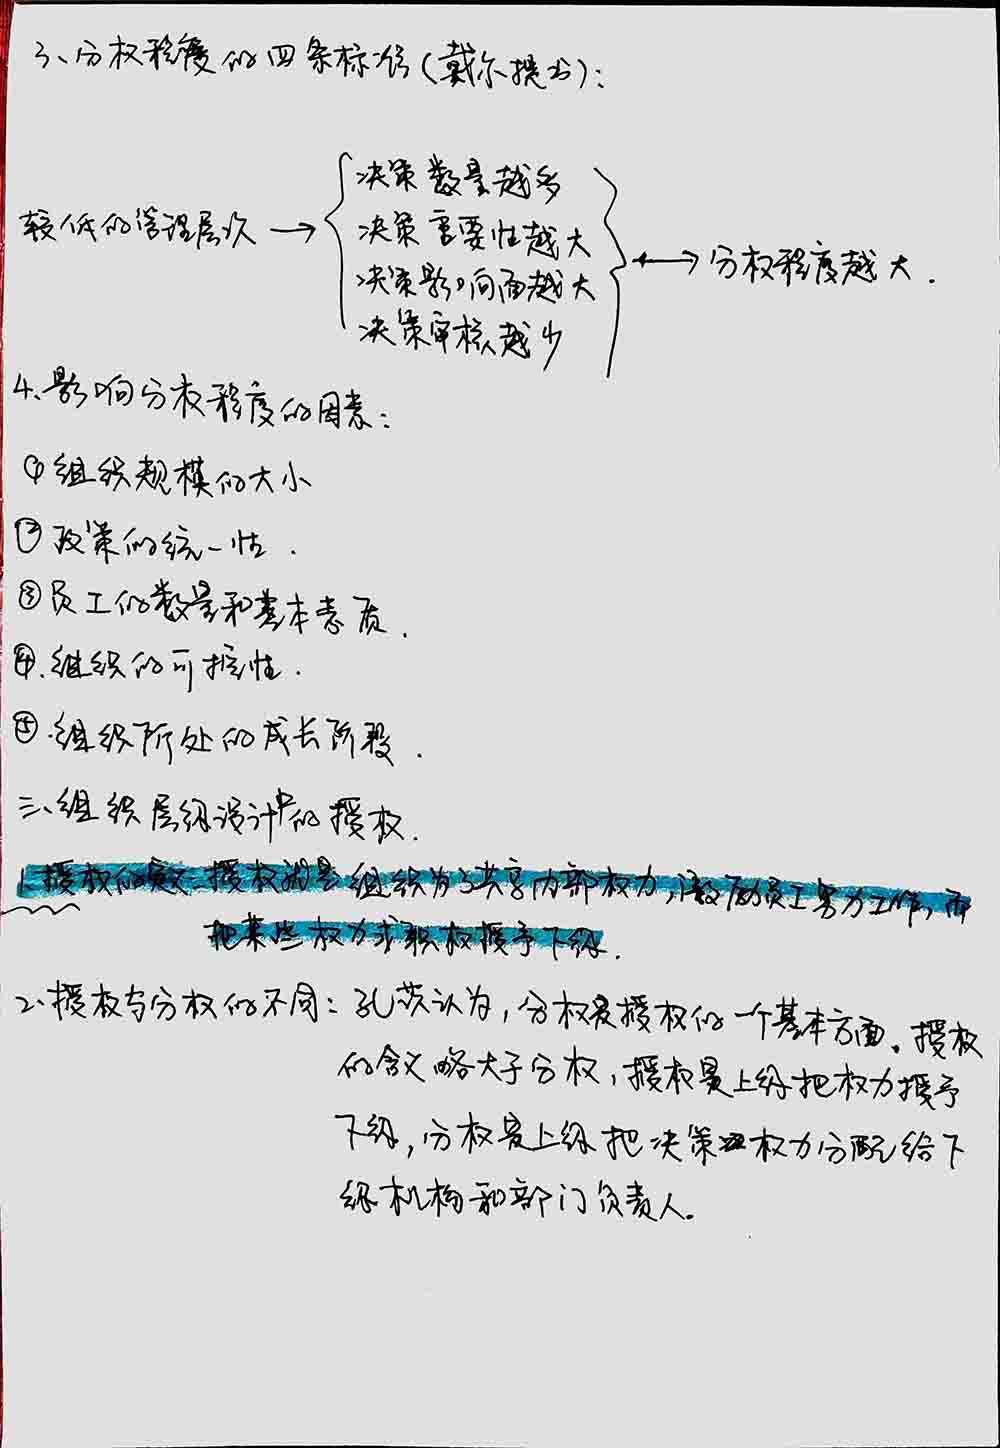 3、分权程度的四条标准(戴尔提出):
较低的管理层次 → { 决策数量越多
决策重要性越大
决策影响面越大
决策审核越少 } ↔ 分权程度越大.
4、影响分权程度的因素:
①组织规模的大小
②政策的统一性.
③员工的数量和基本素质.
④.组织的可控性.
⑤.组织所处的成长阶段.
三、组织层级设计中的授权.
1、授权的含义:授权就是组织为了共享内部权力,激励员工努力工作,而
把某些权力或职权授予下级.
2、授权与分权的不同:孔茨认为,分权是授权的一个基本方面。授权
的含义略大于分权,授权是上级把权力授予
下级,分权是上级把决策权力分配给下
级机构和部门负责人。